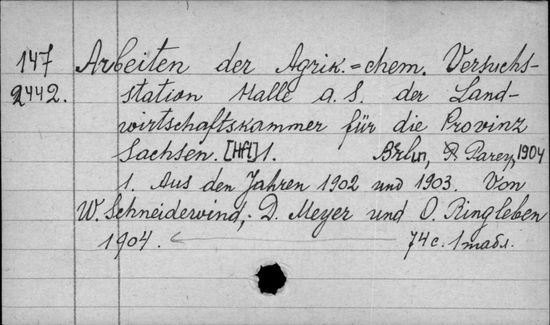 147 Arbeiten der Agrik.=chem. Versuchs-
2442. station Halle a. S. der Land-
wirtschaftskammer für die Provinz
Sachsen. [Hft] 1. Brln, P. Parey, 1904
1. Aus den Jahren 1902 und 1903. Von
W. Schneidewind, D. Meyer und O. Ringleben
1904. 74 с. 1 табл.